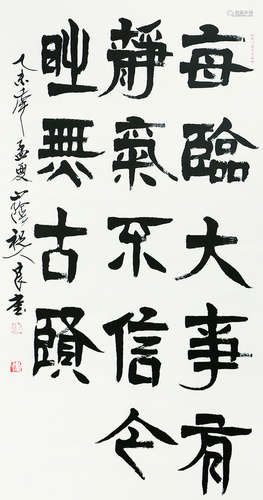 每臨大事有
靜氣不信今
時無古賢
乙未年孟夏山陰書